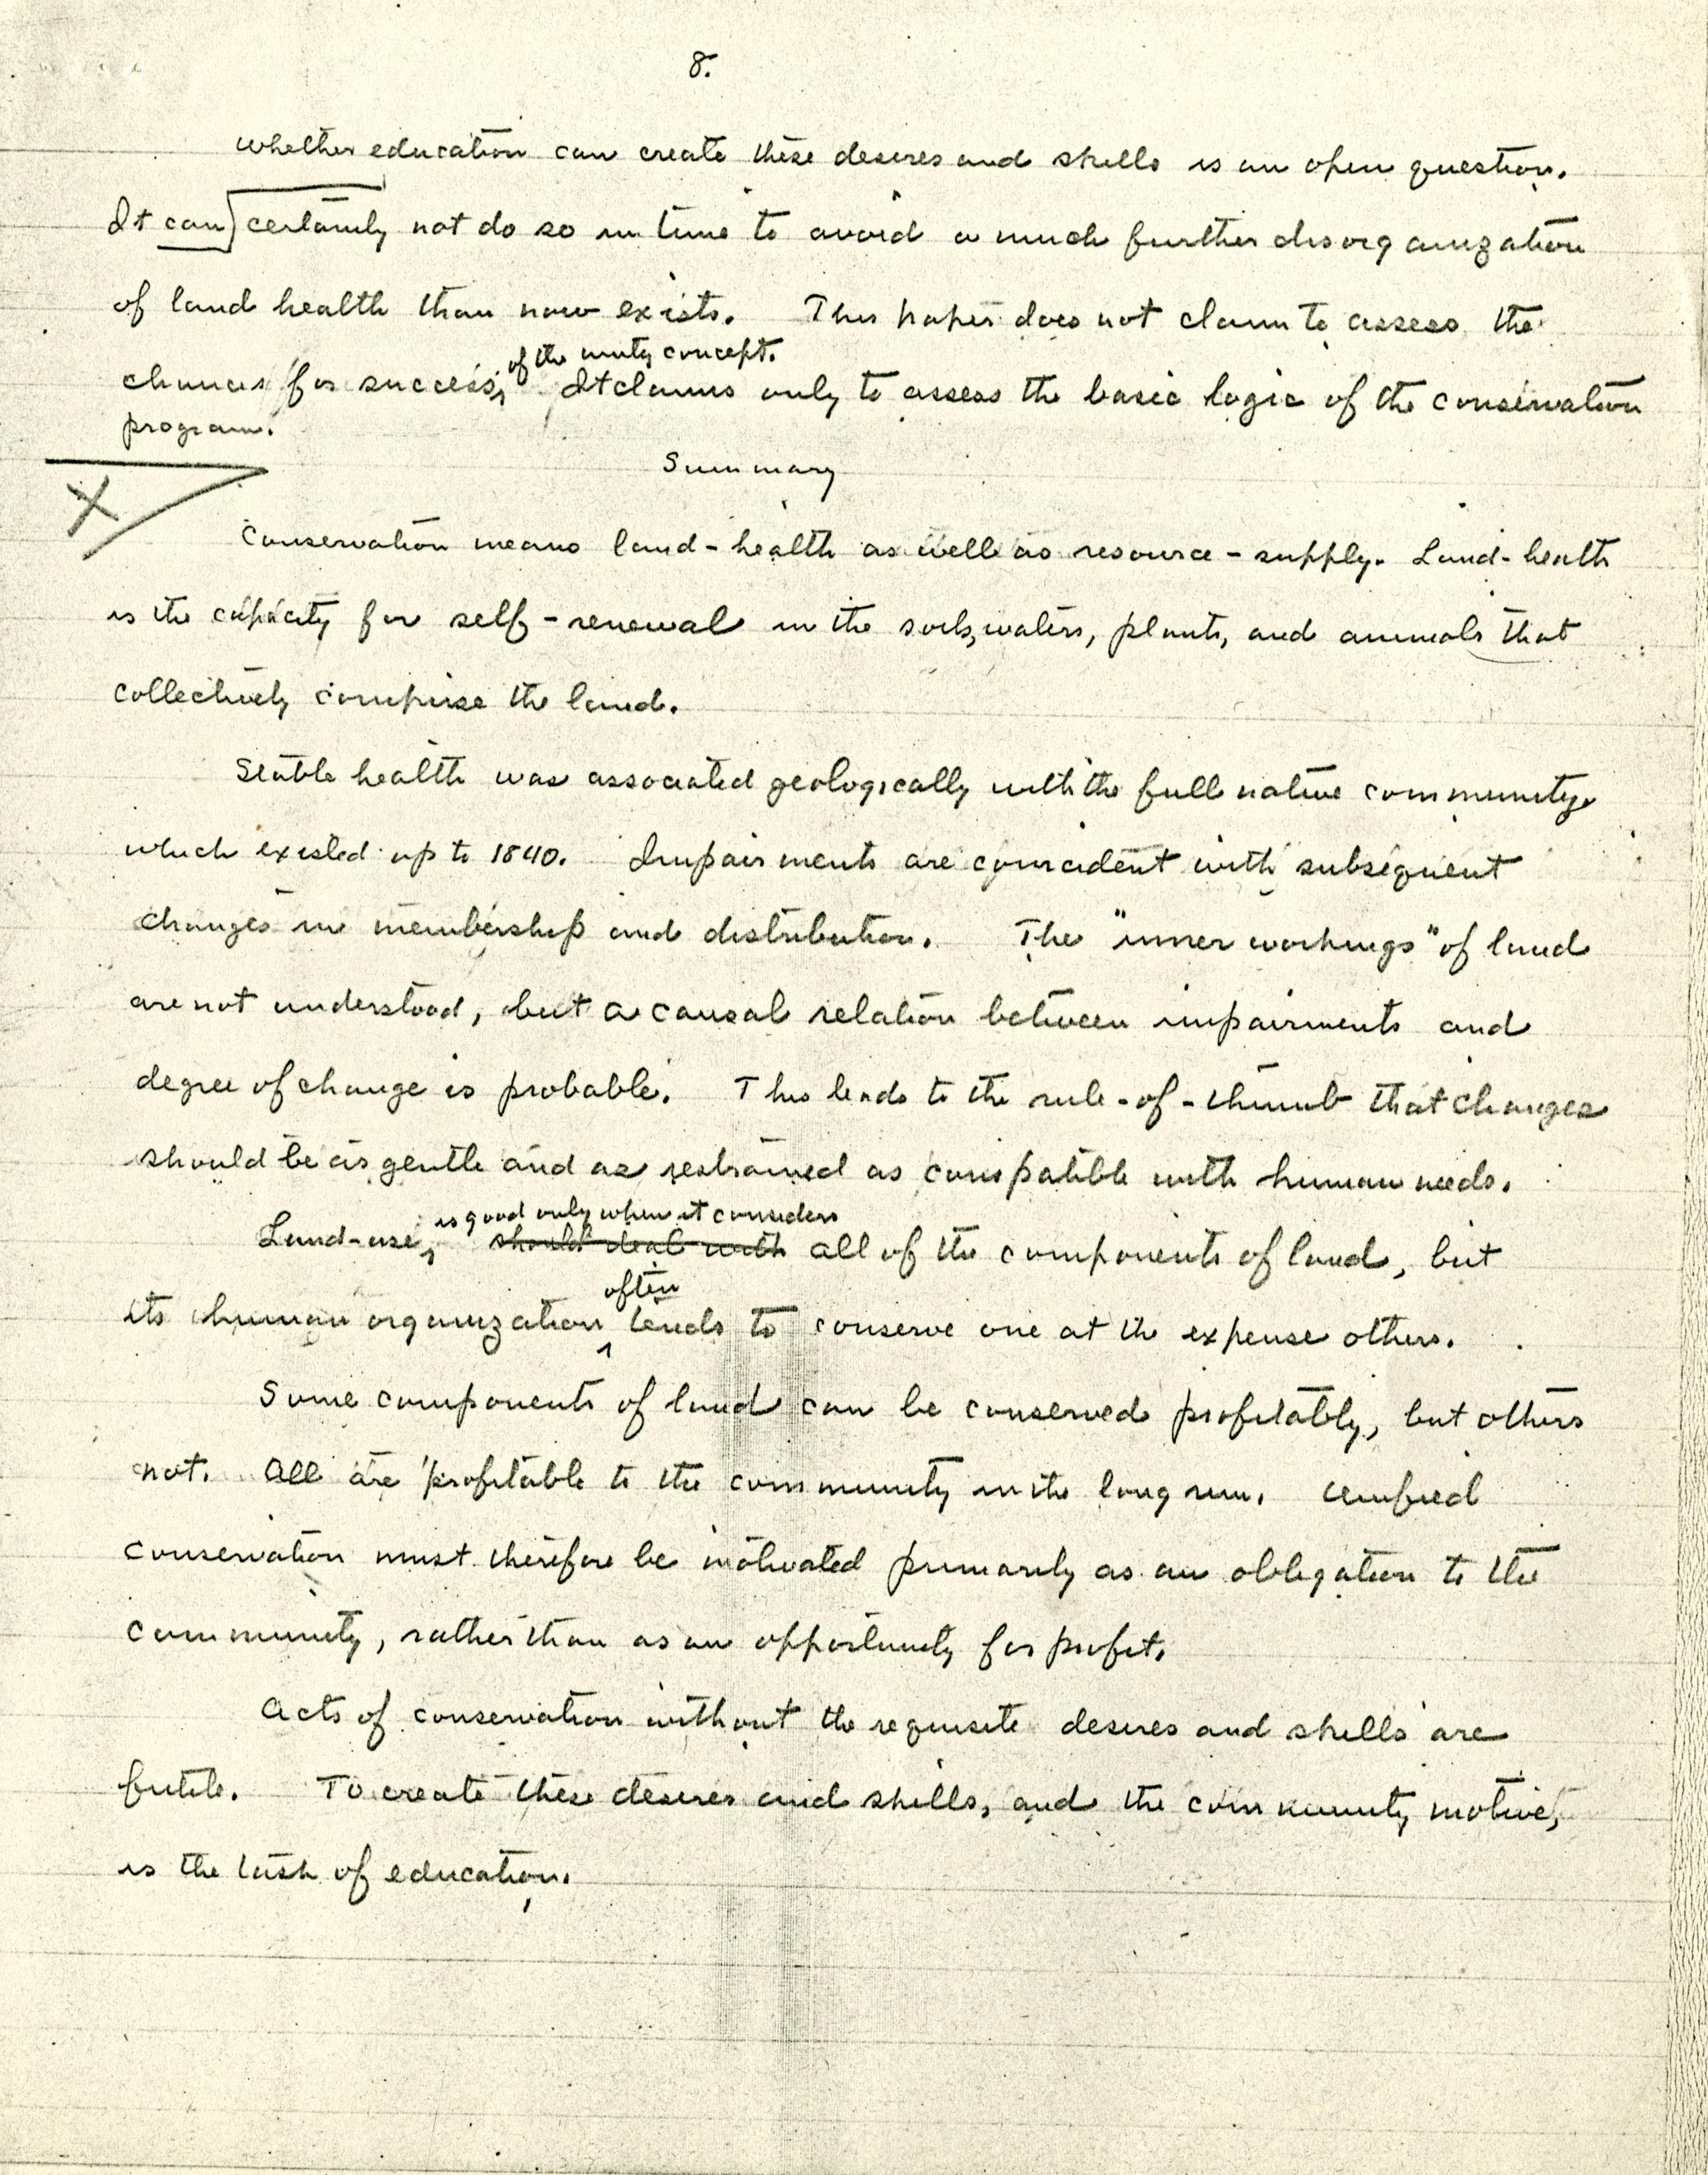 8.
Whether education can create these desires and skills is an open question.
It can certainly not do so in time to avoid a much further disorganization
of land health than now exists. This paper does not claim to assess the
of the unity concept.
chances for success, It claims only to assess the basic logic of the conservation
program.
Summary
X
Conservation means land-health as well as resource-supply. Land-health
is the capacity for self-renewal in the soils, waters, plants, and animals that
collectively comprise the land.
Stable health was associated geologically with the full native community,
which existed up to 1840. Impairments are coincident with subsequent
changes in membership and distribution. The "inner workings" of land
are not understood, but a causal relation between impairments and
degree of change is probable. This leads to the rule-of-thumb that changes
should be as gentle and as restrained as compatible with human needs.
is good only when it considers
Land-use, should deal with all of the components of land, but
often
its human organization tends to conserve one at the expense others.
Some components of land can be conserved profitably, but others
not. All are profitable to the community in the long run. Unified
conservation must therefore be motivated primarily as an obligation to the
community, rather than as an opportunity for profit.
Acts of conservation without the requisite desires and skills are
futile. To create these desires and skills, and the community motive,
is the task of education.